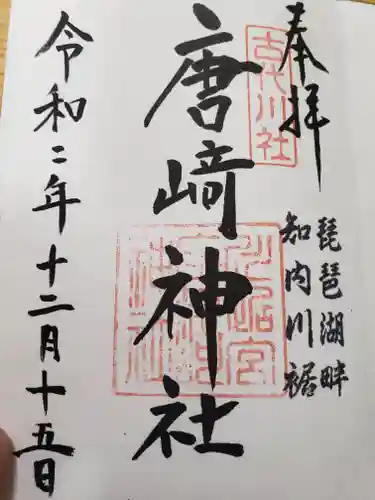 奉拝
古代川社
琵琶湖畔
知内川裾
唐崎神社
令和二年十二月十五日